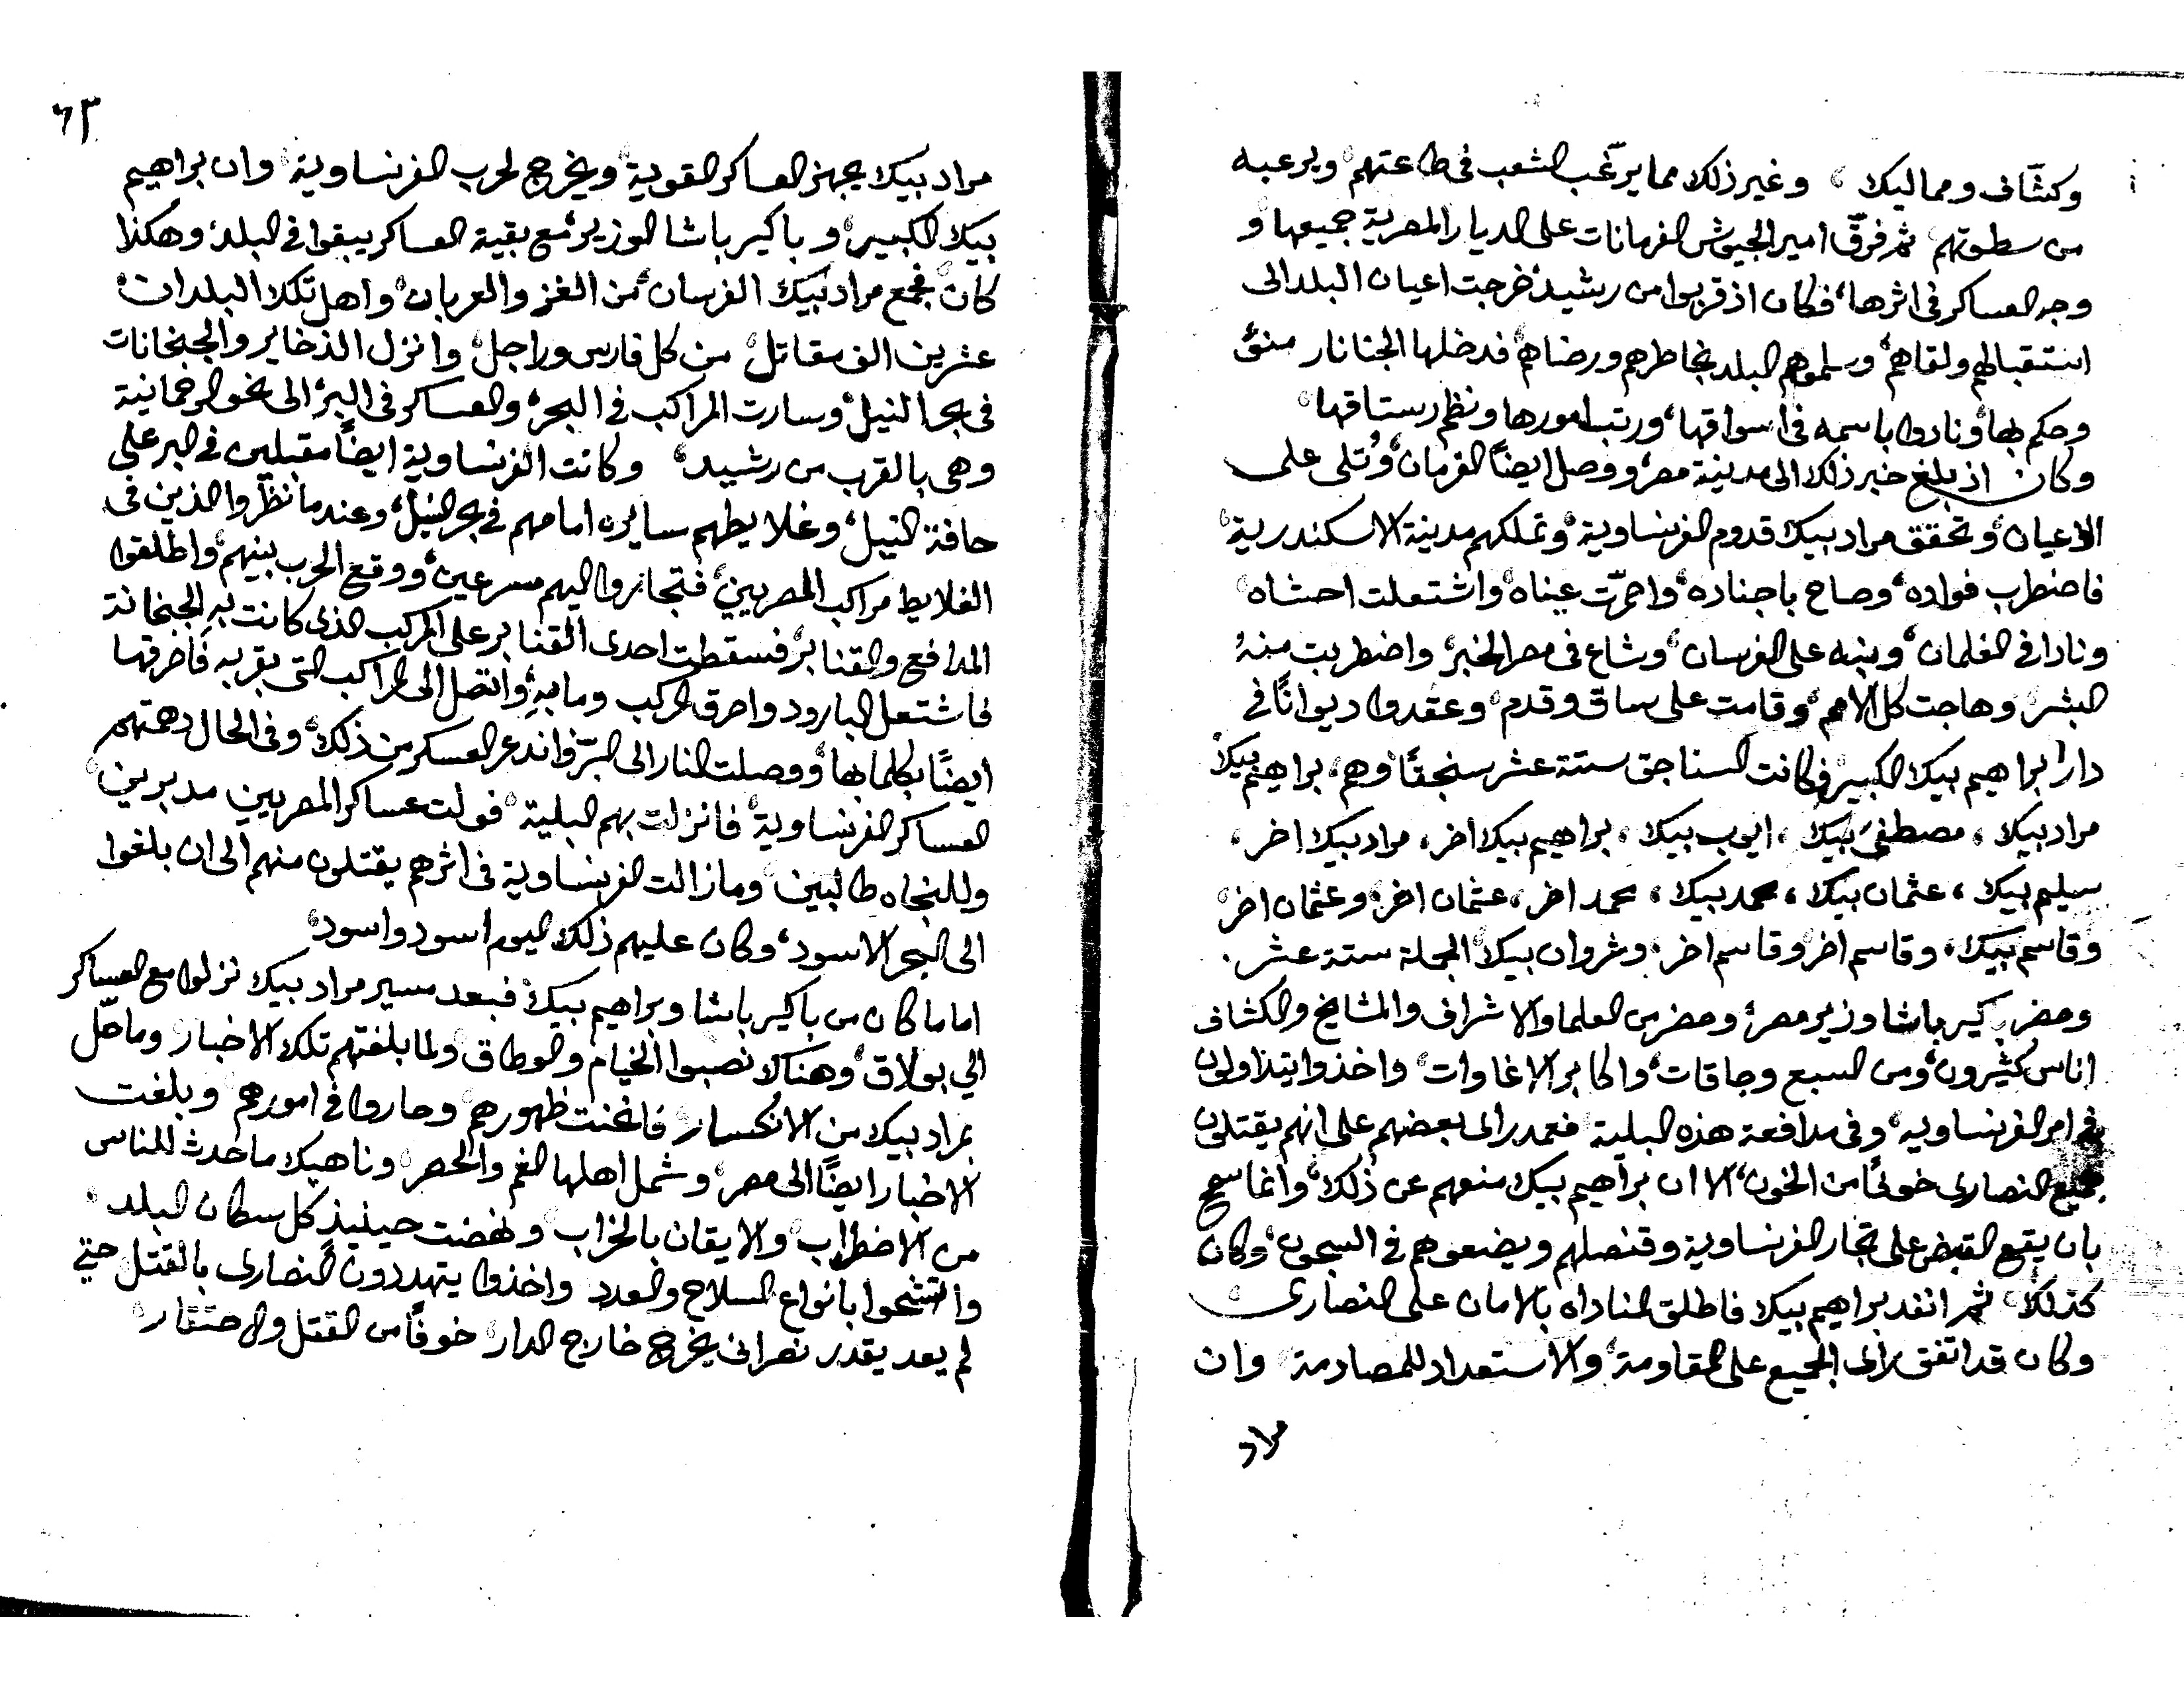 وكشاف ومماليك، وغير ذلك مما يرغّب الشعب في طاعتهم، ويرعبه
من سطوتهم ثم فرّق امير الجيوش الفرمانات على الديار المصرية جميعها و
وجه العساكر في اثرها، فكان اذ قربوا من رشيد، خرجت اعيان البلد الى
استقبالهم ولقاهم، وسلموهم البلد بخاطرهم ورضاهم، فدخلها الجنانار منو
وحكم بها، ونادوا باسمه في اسواقها، ورتب امورها ونظم رستاقها،
وكان اذ بلغ خبر ذلك الى مدينة مصر، ووصل ايضًا الفرمان، وتلى على
الاعيان، وتحقق مراد بيك قدوم الفرنساوية، وتملكهم مدينة الاسكندرية،
فاضطرب فواده، وصاح باجناده، واحمرّت عيناه، واشتعلت احشاه،
ونادا في الغلمان، ونبه على الفرسان، وشاع في مصر الخبر، واضطربت منه
البشر، وهاجت كل الامم، وقامت على ساق وقدم، وعقدوا ديوانًا في
دار ابراهيم بيك الكبير، فكانت السناجق ستة عشر سنجقًا، وهم، براهيم بيك
مراد بيك، مصطفى بيك، ايوب بيك، براهيم بيك اخر، مراد بيك اخر،
سيلم بيك، عثمان بيك، محمد بيك، محمد اخر، عثمان اخر، وعثمان اخر،
وقاسم بيك، وقاسم اخر وقاسم اخر، وشروان بيك، الجملة ستة عشر.
وحضر باكير باشا وزير مصر، وحضر من العلما والاشراف والمشايخ والكشاف
اناس كثيرون، ومن السبع وجاقات، واكابر الاغاوات، واخذوا يتداولون
في امر الفرنساويه، وفي مدافعة هذه البلية، فعمد راى بعضهم على انهم يقتلون
جميع النصارى خوفًا من الخون، الا ان براهيم بيك منعهم عن ذلك، وانما سمح
بان يقع القبض على تجار الفرنساوية وقنصلهم ويضعوهم في السجون، وكان
كذلك، ثم انفد براهيم بيك فاطلق المناداه بالامان على النصارى
وكان قد اتفق راى الجميع على المقاومة، والاستعداد للمصادمة، وان
مراد
٦٣
مراد بيك يجهز العساكر القوية، ويخرج لحرب الفرنساوية، وان براهيم
بيك الكبير، وباكير باشا الوزير، مع بقية العساكر يبقوا في البلد، وهكذا
كان، فجمع مراد بيك الفرسان، من الغز والعربان، واهل تلك البلدات،
عشرين الف مقاتل، من كل فارس وراجل، وانزل الذخاير والجبخانات
في بحر النيل، وسارت المراكب في البحر، والعساكر في البر، الى نحو الرحمانية
وهي بالقرب من رشيد، وكانت الفرنساوية ايضًا مقبلين في البر على
حافة النيل، وغلايطهم سايره امامهم في بحر النيل، وعندما نظروا الذين في
الغلايط مراكب المصريين، فتجاروا اليهم مسرعين، ووقع الحرب بينهم، واطلقوا
المدافع والقنابر، فسقطت احدى القنابر على المركب الذي كانت به الجبخانة
فاشتعل البارود واحرق المركب وما به، واتصل الى المراكب التي بقربه فاحرقها
ايضًا بكلما بها، ووصلت النار الى البرّ، فاندعر العسكر من ذلك، وفي الحال دهمتهم
العساكر الفرنساوية، فانزلت بهم البلية، فولت عساكر المصريين مدبرين،
وللنجاه طالبين، ومازالت الفرنساوية في اثرهم يقتلون منهم الى ان بلغوا
الى البحر الاسود، وكان عليهم ذلك اليوم اسود واسود،
اما ما كان من باكير باشا وبراهيم بيك، فبعد مسير مراد بيك نزلوا مع العساكر
الي بولاق، وهناك نصبوا الخيام والوطاق، ولما بلغتهم تلك الاخبار، وما حلّ
بمراد بيك من الانكسار، فانحنت ظهورهم، وحاروا في امورهم، وبلغت
الاخبار ايضًا الى مصر، وشمل اهلها الغم والحصر، وناهيك ما حدث للناس
من الاضطراب، والايقان بالخراب، ونهضت حينيذٍ كل سكان البلد،
واتشحوا بانواع السلاح والعدد، واخذوا يتهددون النصارى بالقتل، حتي
لم يعد يقدر نصراني يخرج خارج الدار، خوفًا من القتل والاحتقار،